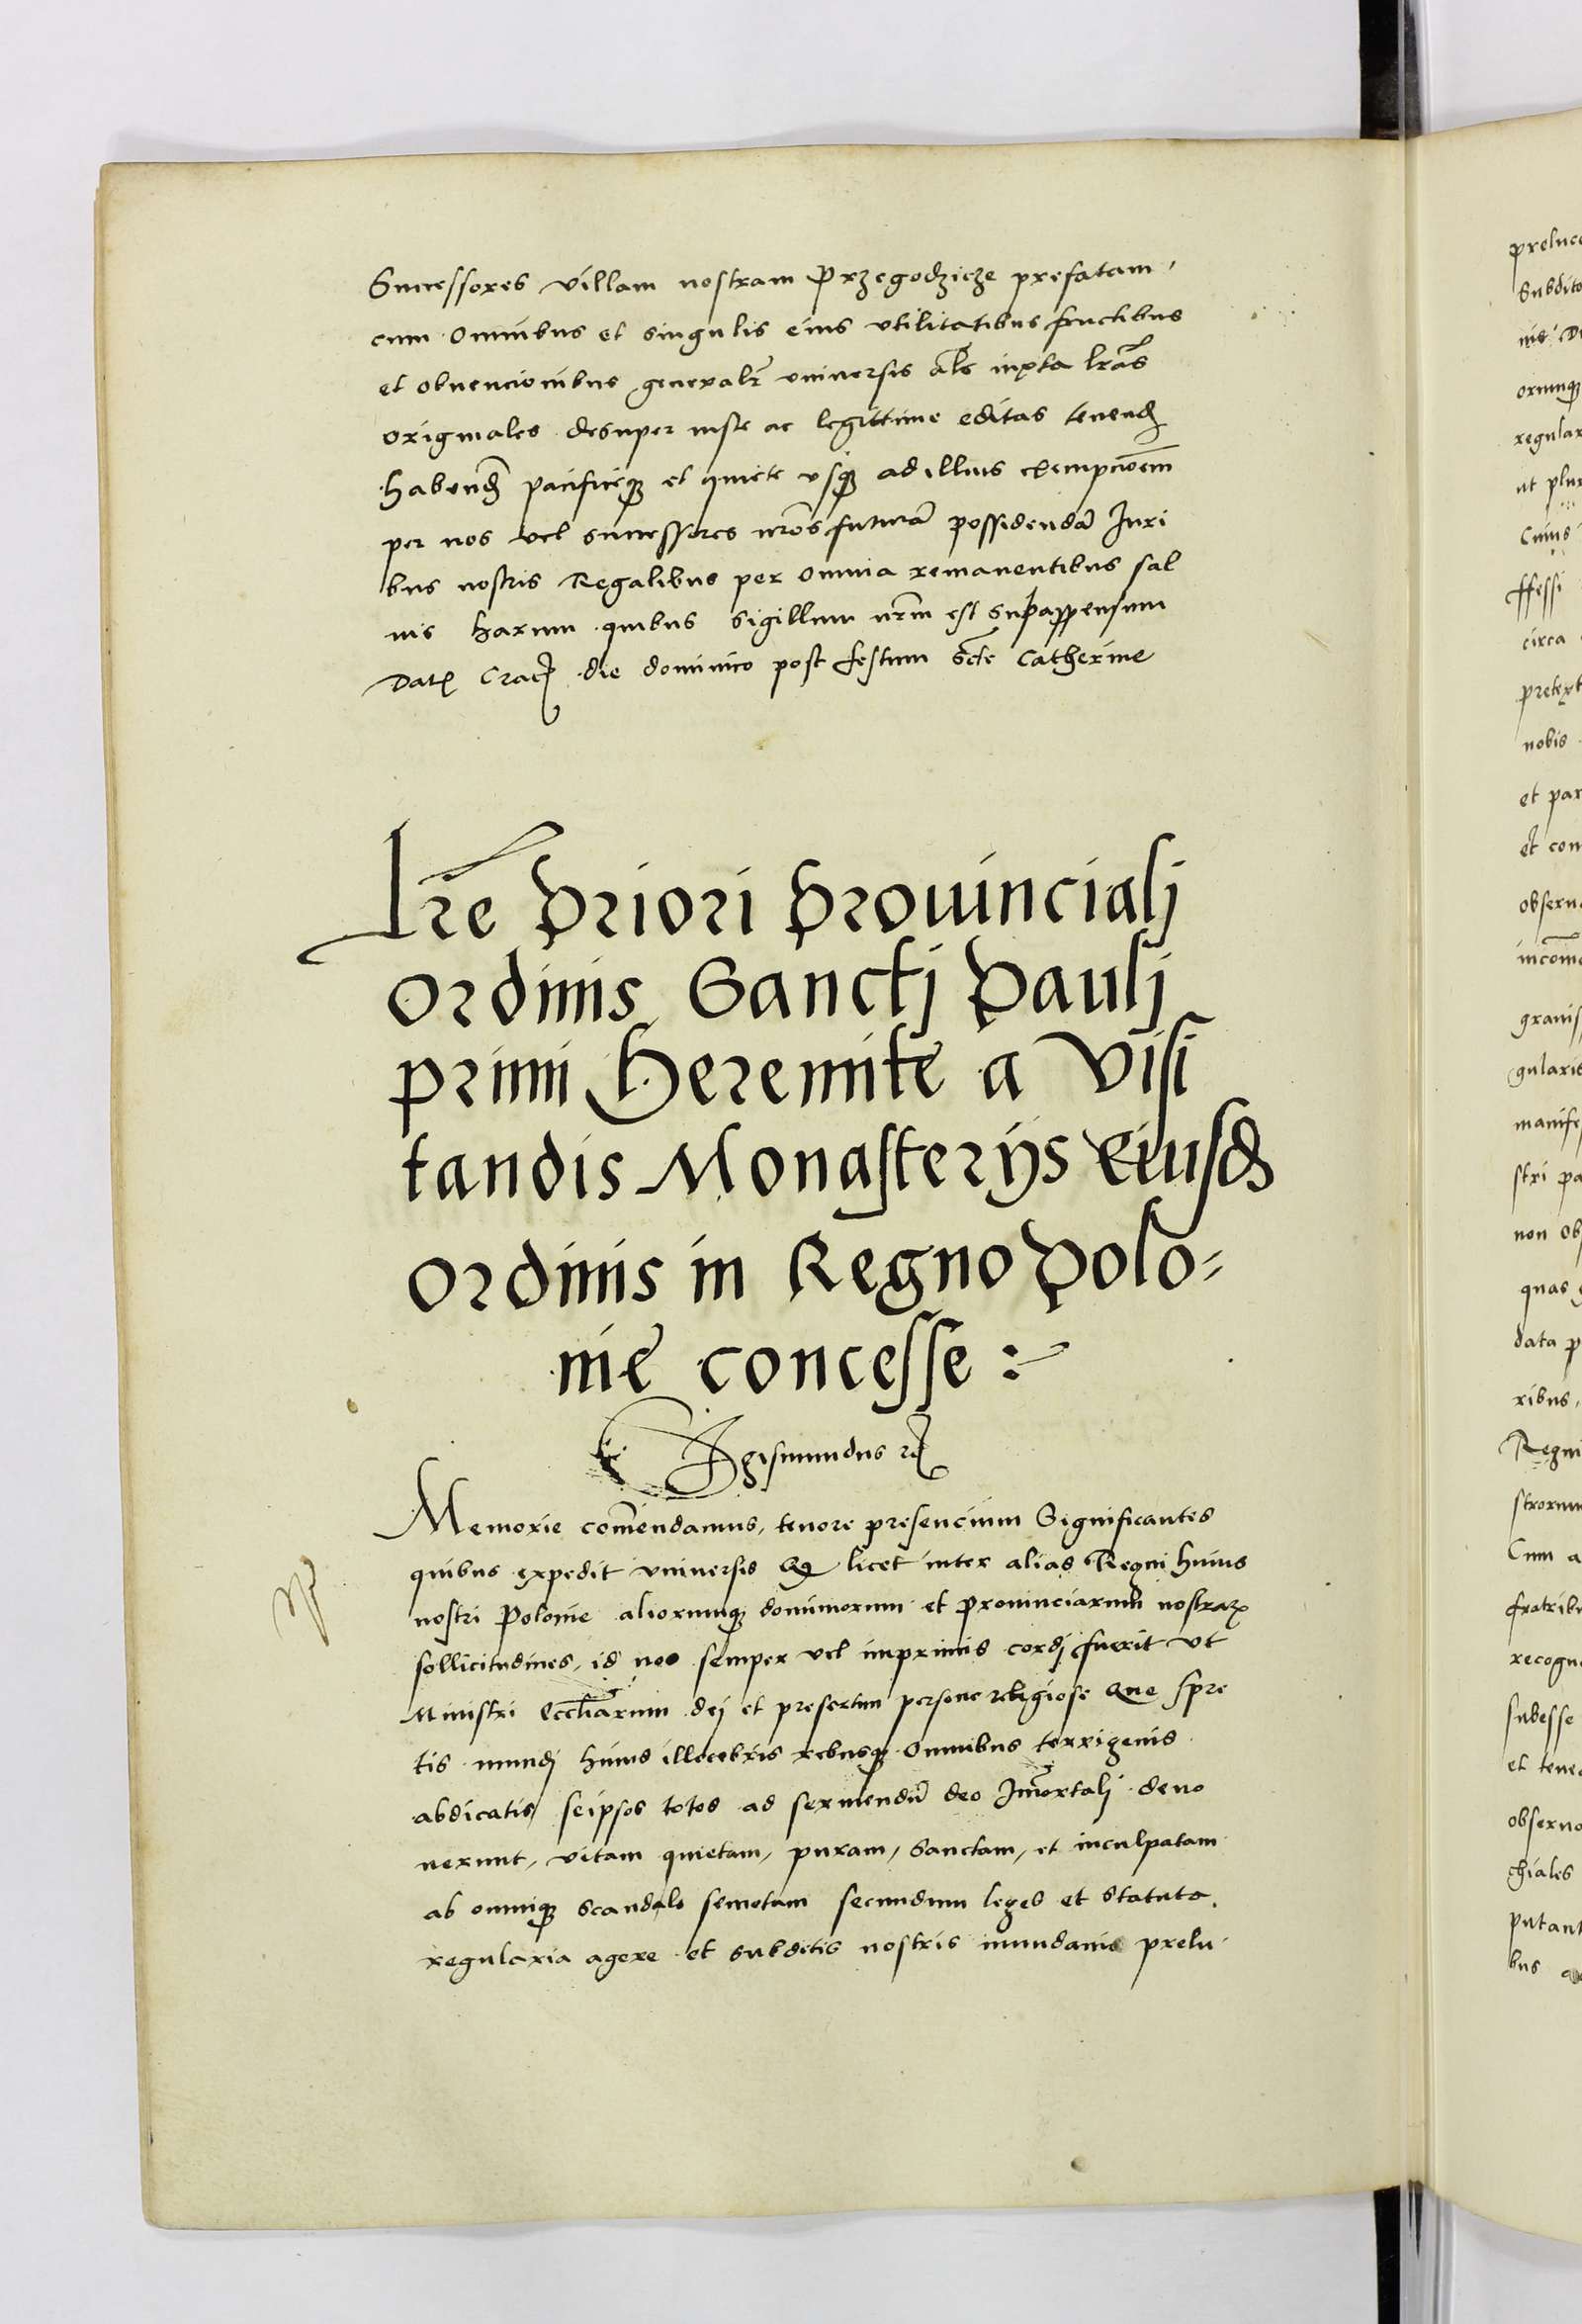 Successores villam nostram Przegodzicze prefatam
cum omnibus et singulis eius vtilitatibus fructibus
et obuencionibus generalr̃ vniuersis als iuxta lras
originales desuper iuste ac legittime editas tenend
habend pacificeq3 et quiete vsq3 ad illius exempcionem
per nos vel successores nros futura possidenda Iuri
bus nostris Regalibus per omnia remanentibus sal
uis harum quibus sigillum nrm est subappensum
Dat Crac die dominico post festum scte Catherine
Lre Priori Prouincialj
Ordinis Sanctj Paulj
primi Heremite a Visi
tandis Monasterijs Eiusd
Ordinis in Regno Polo=
nie concesse :~
Sigismundus r
Memorie comendamus, tenore presencium Significantes
quibus expedit vniuersis Q licet inter alias Regni huius
nostri Polonie aliorumq3 dominiorum et prouinciarum nostrar
sollicitudines, id nos semper vel inprimis cordj fuerit vt
Ministri Eccliarum dej et presertim persone religiose que spre
tis mundj huius illecebris rebusq3 omnibus terrigenis
abdicatis seipsos totos ad seruiendu deo Imortalj deuo
uerunt, vitam quietam, puram, sanctam, et inculpatam
ab omniq3 scandalo semotam secundum leges et statuta
regularia agere et subditis nostris mundanis prelu
preluce
Subdito
orumq3
regular
ut plur
Cuius
ffessi
circa
pretext
nobis
et par
et con
obseru
grauis
gularis
manife
stri pa
non ob
quas
data p
ribus,
Regni
strorum
Cum a
fratribu
recogn
subesse
et tene
obserua
chiales
putant
bus